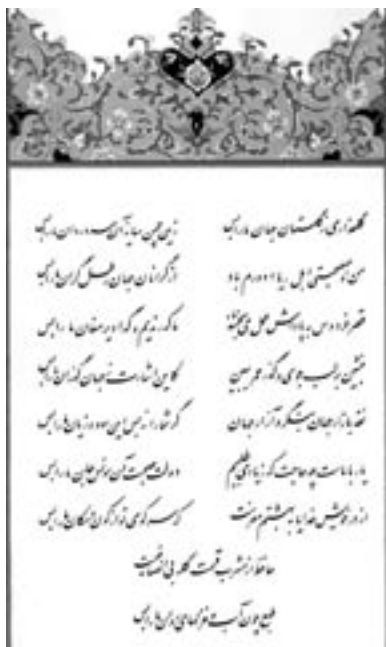 گلعذاری ز گلستان جهان ما را بس زین چمن سایه آن سرو روان ما را بس
من و همصحبتی اهل ریا دورم باد از گرانان جهان رطل گران ما را بس
قصر فردوس به پاداش عمل می‌بخشند ما که رندیم و گدا دیر مغان ما را بس
بنشین بر لب جوی و گذر عمر ببین کاین اشارت ز جهان گذران ما را بس
نقد بازار جهان بنگر و آزار جهان گر شما را نه بس این سود و زیان ما را بس
یار با ماست چه حاجت که زیادت طلبیم دولت صحبت آن مونس جان ما را بس
از در خویش خدا را به بهشتم مفرست که سر کوی تو از کون و مکان ما را بس
حافظ از مشرب قسمت گله بی‌انصافیست
طبع چون آب و غزلهای روان ما را بس